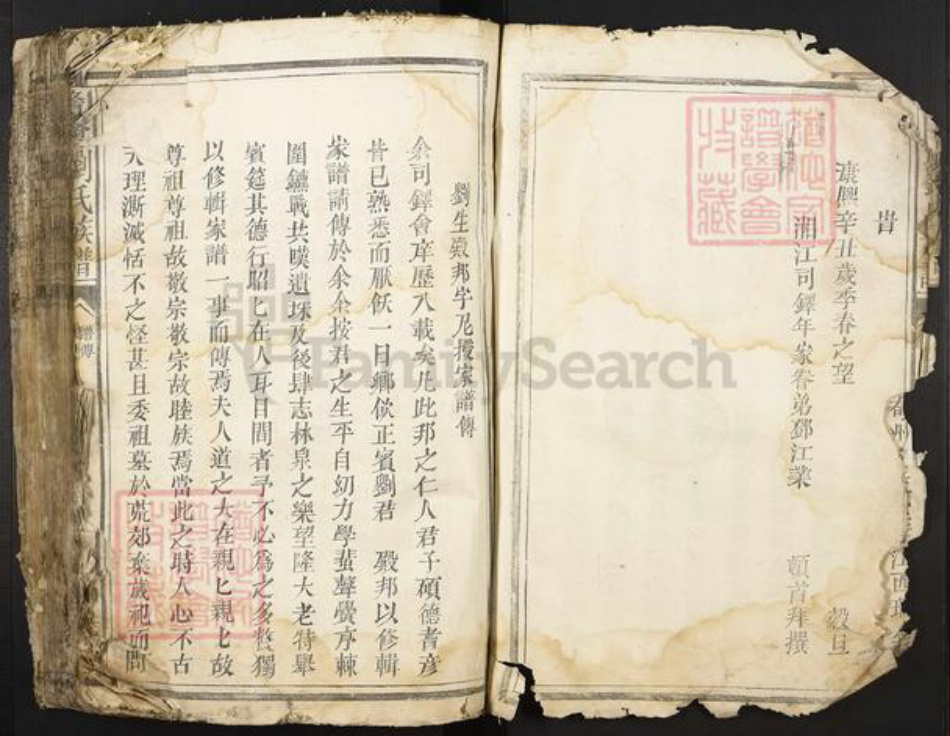 旹
漢興辛丑歲季春之望　穀旦
湘江司鐸年家眷弟鄧江業　頓首拜撰
劉生殿邦字凡授家譜傳
余司鐸會庠歷八載矣凡此邦之仁人君子碩德者彥
皆已熟悉而厭飫一日鄉飲正賓劉君　殿邦以修輯
家譜請傳於余余按君之生平自幼力學蜚聲黌序棘
闈鏖戰共嘆遺珠及後肆志林泉之樂望隆大老特舉
賓筵其德行昭匕在人耳目間者予不必為之多贅獨
以修輯家譜一事而傳焉夫人道之大在親匕親匕故
尊祖尊祖故敬宗敬宗故睦族焉當此之時人心不古
天理澌滅恬不之怪甚且委祖墓於荒郊棄歲祀而問
劉氏族譜
譜傳
FamilySearch